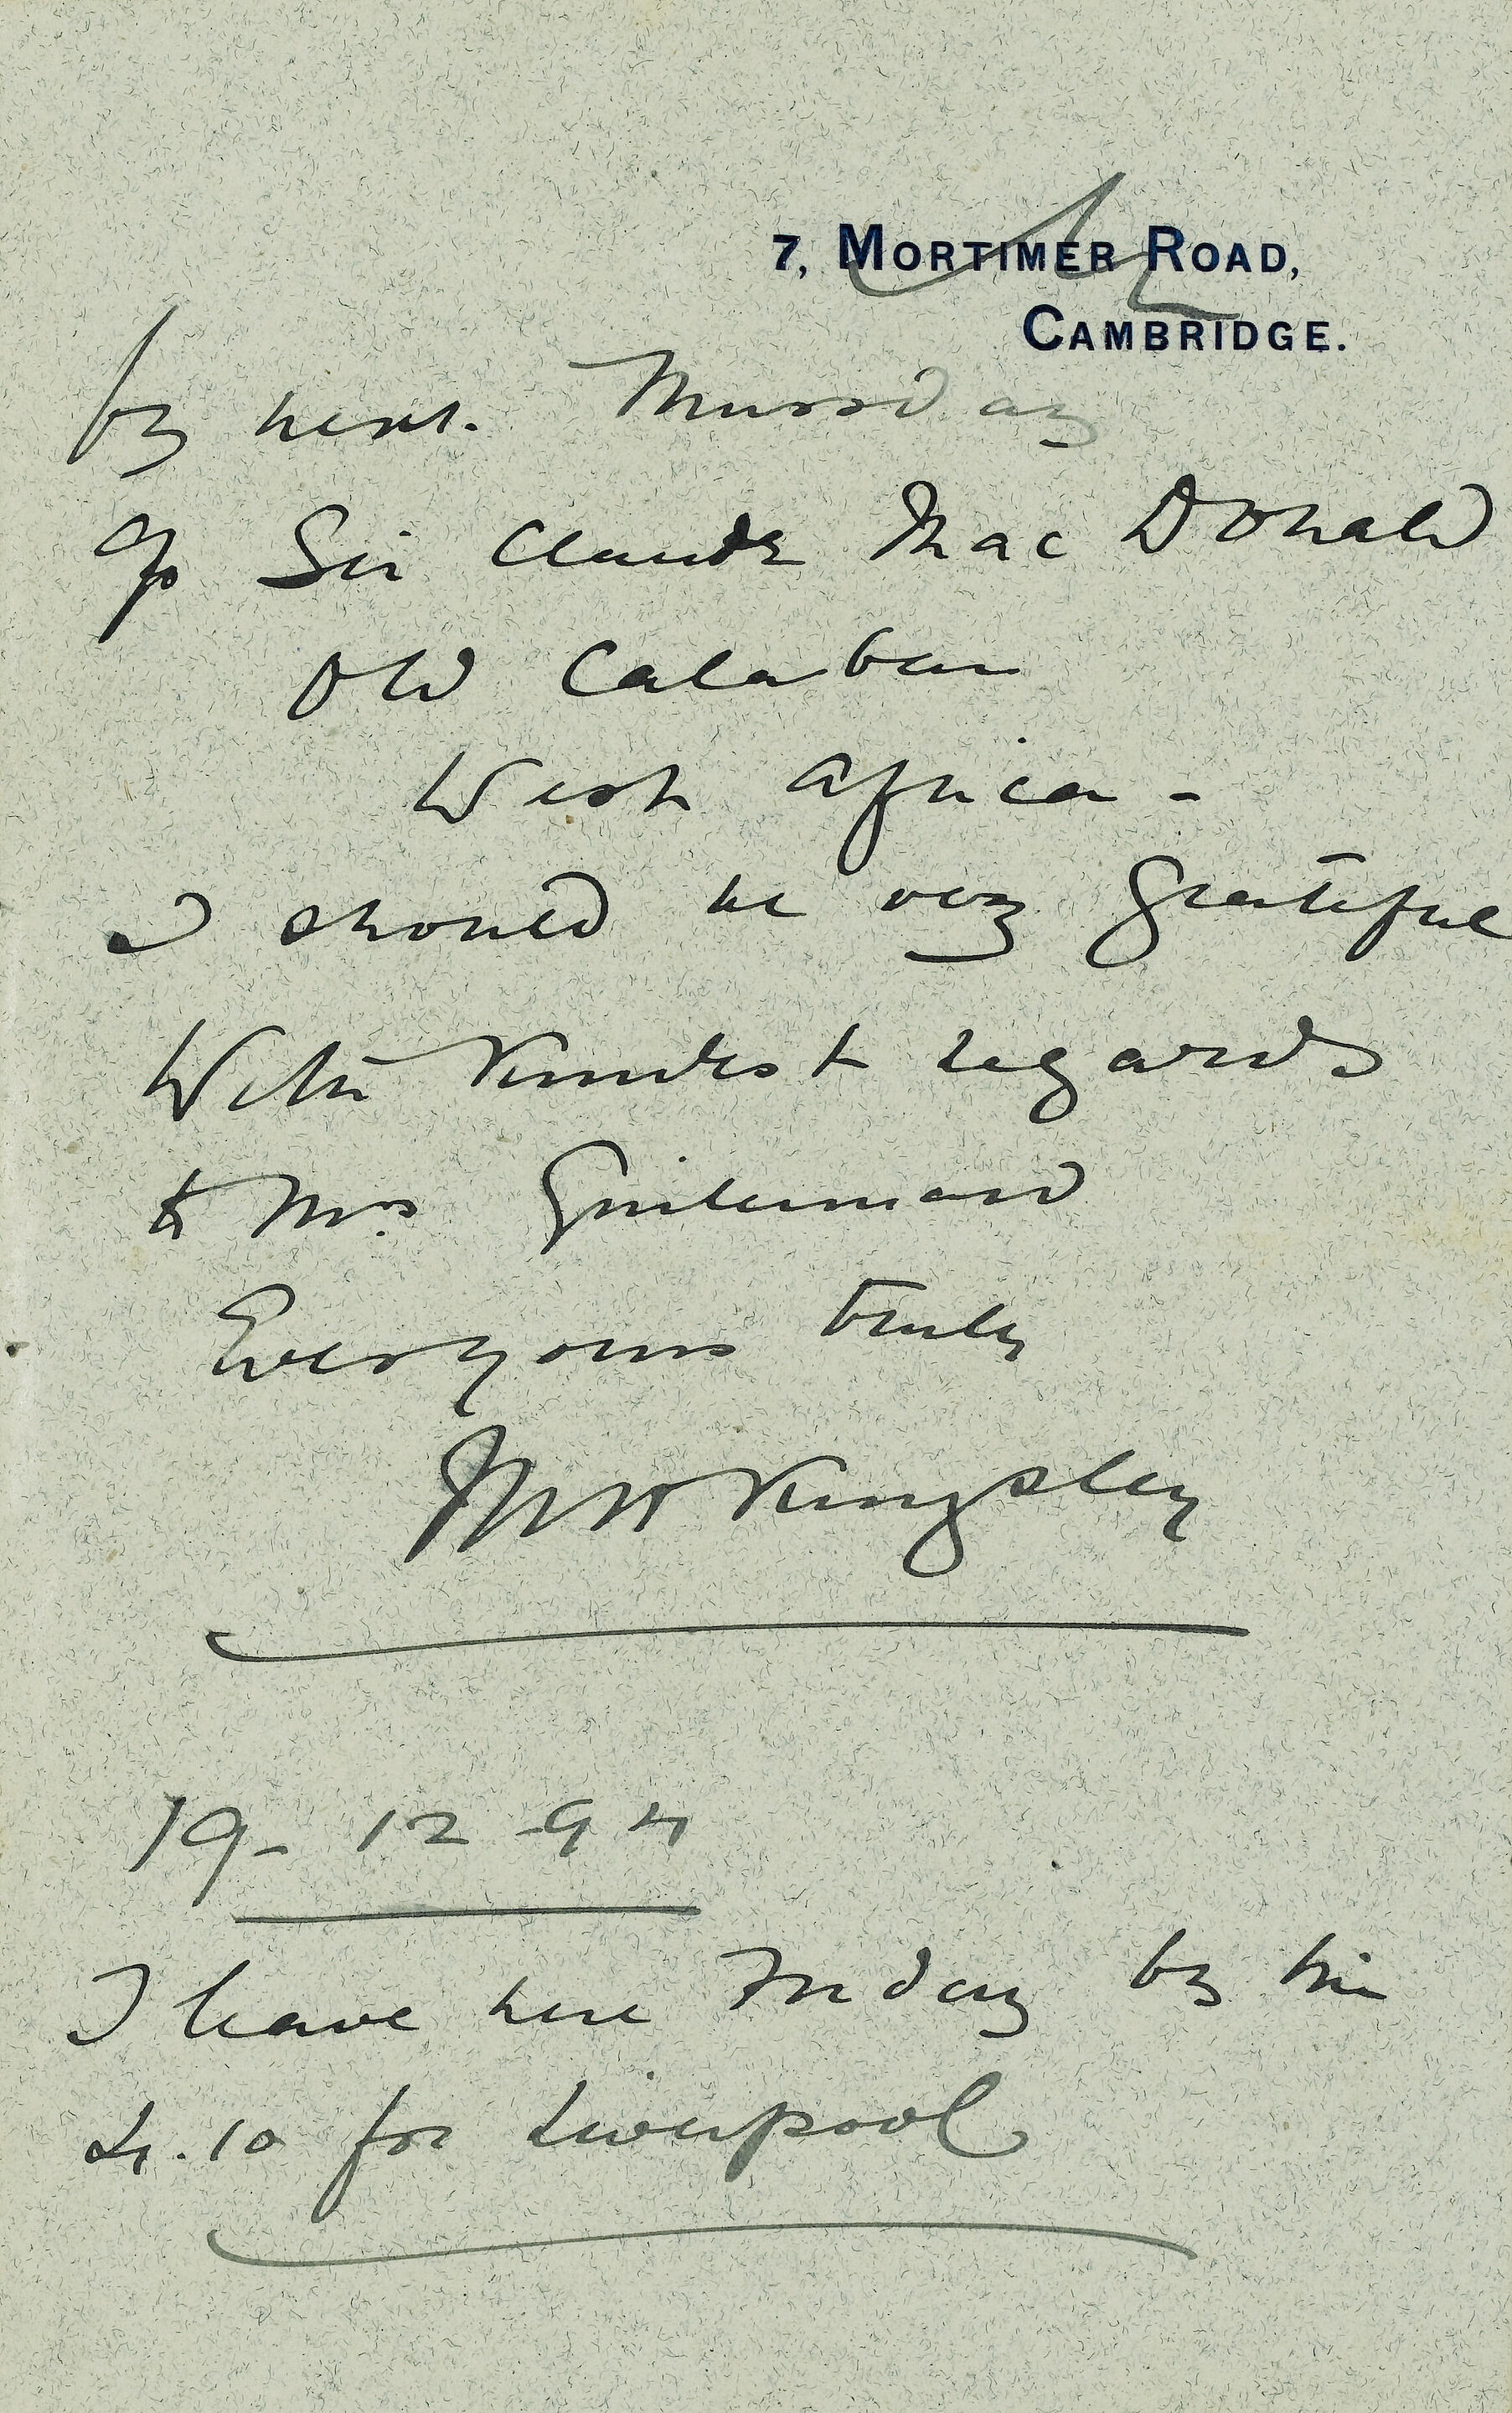 7, MORTIMER ROAD,
CAMBRIDGE.
by next Thursday
c/o Sir Claude MacDonald
Old Calabar
West Africa -
I should be very grateful
With kindest regards
to Mrs Guillemard
Ever yours truly
MH Kingsley
19- 12 -94
I leave here Friday by the
4.10 for Liverpool